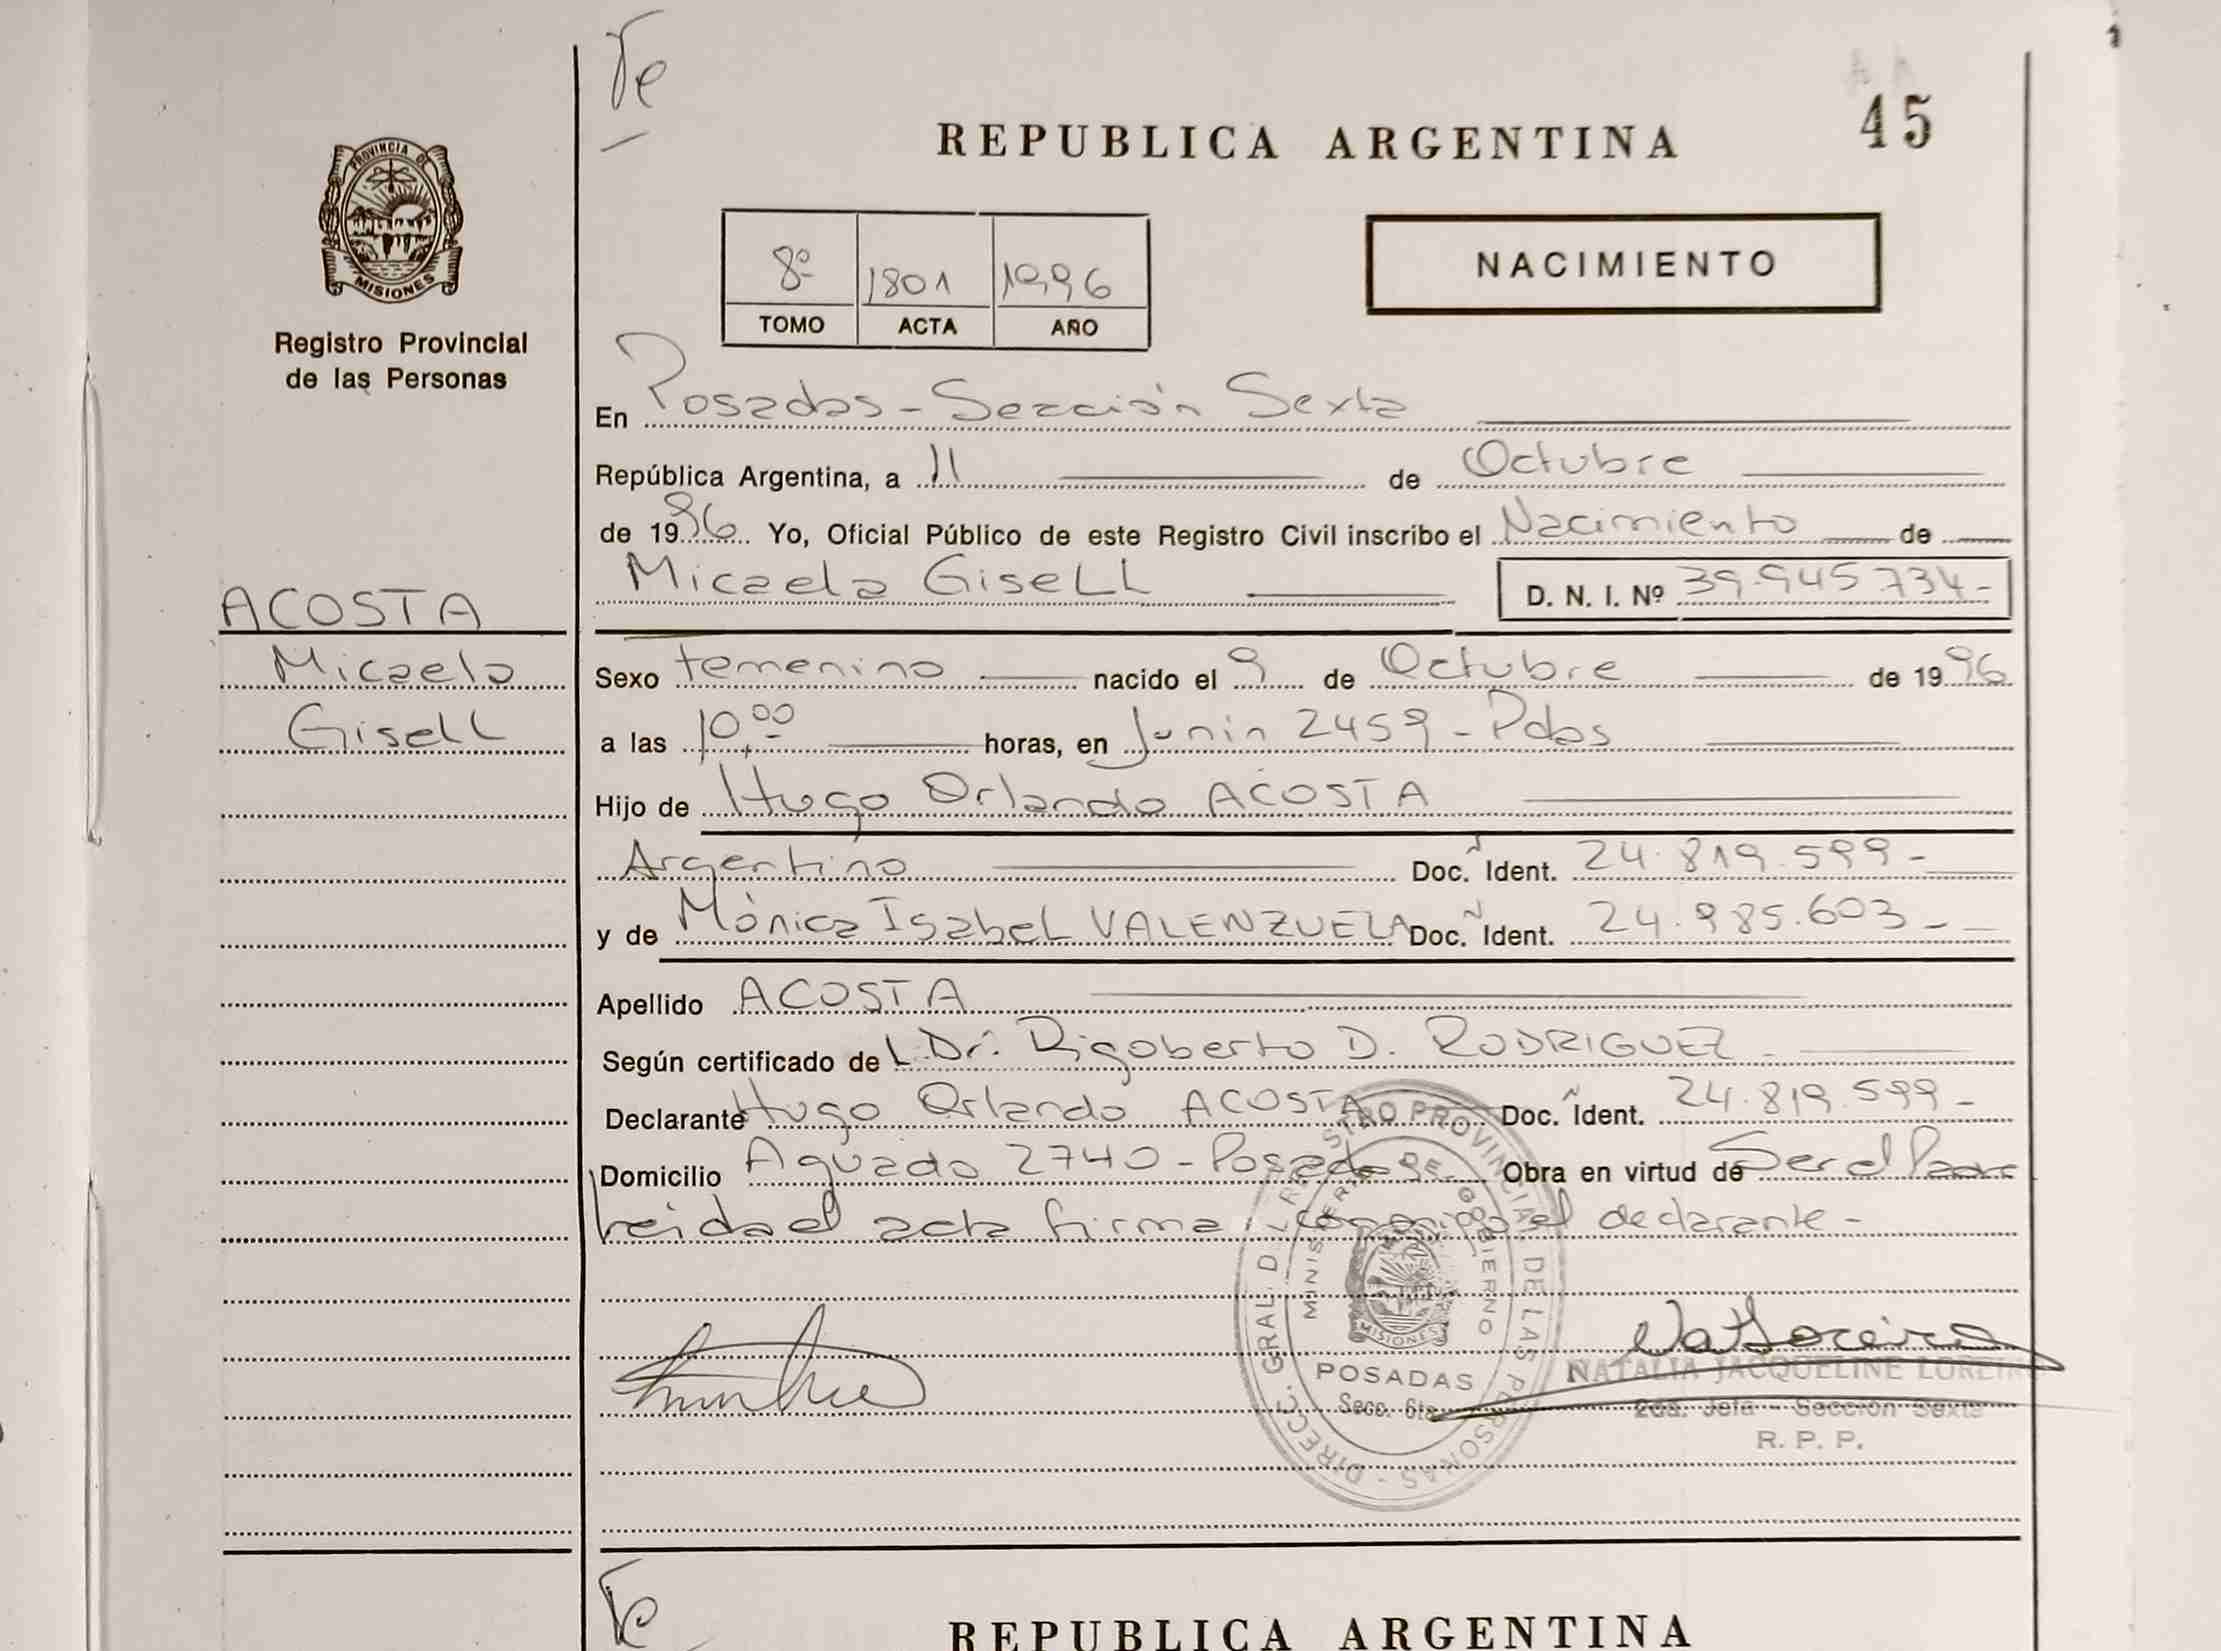 Te
REPUBLICA ARGENTINA
45
PROVINCIA DE
MISIONES
Registro Provincial
de las Personas
8º 1801 1996
TOMO ACTA AÑO
NACIMIENTO
En Posadas - Sección Sexta
República Argentina, a 11 de Octubre
de 1996 Yo, Oficial Público de este Registro Civil inscribo el Nacimiento de
Micaela Gisell D. N. I. Nº 39.945.734-
ACOSTA
Micaela
Gisell
Sexo Femenino nacido el 9 de Octubre de 1996
a las 10,00 horas, en Junin 2459 - Pdas
Hijo de Hugo Orlando ACOSTA
Argentino Doc. Ident. 24.819.599-
y de Mónica Isabel VALENZUELA Doc. Ident. 24.985.603-
Apellido ACOSTA
Según certificado de L Dr. Rigoberto D. RODRIGUEZ
Declarante Hugo Orlando ACOSTA Doc. Ident. 24.819.599-
Domicilio Aguado 2740 - Posadas Obra en virtud de Ser el Padre
Leida el acta firma conmigo el declarante -
DIRECC. GRAL. DEL REGISTRO PROVINCIAL DE LAS PERSONAS
MINISTERIO DE GOBIERNO
MISIONES
POSADAS
Secc. 6ta
NATALIA JACQUELINE LOREIRO
2da. Jefa - Sección Sexta
R. P. P.
Te
REPUBLICA ARGENTINA